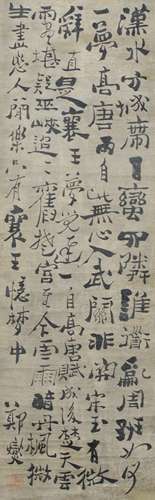 漢水方城帶百蠻四隣誰道亂周班如何
一夢高唐雨自此無心入武關非關宋玉有微
辭直是襄王夢覺遲一自高唐賦成後楚天雲
雨堪疑巫峽迢迢舊楚宮至今雲雨暗丹楓微
生盡戀人間樂只有襄王憶夢中
鄭燮